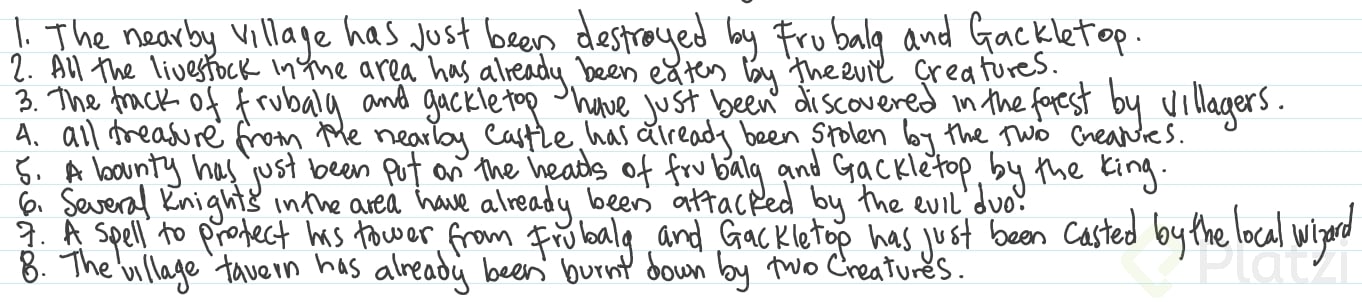 1. The nearby village has Just been destroyed by Frubalg and Gackletop.
2. All the livestock in the area has already been eaten by the evil creatures.
3. The track of frubalg and gackletop have just been discovered in the forest by villagers.
4. all treasure from the nearby castle has already been stolen by the two creatures.
5. A bounty has just been put on the heads of frubalg and Gackletop by the King.
6. Several Knights in the area have already been attacked by the evil duo.
7. A spell to protect his tower from Frubalg and Gackletop has just been casted by the local wizard
8. The village tavern has already been burnt down by two creatures.
Platzi